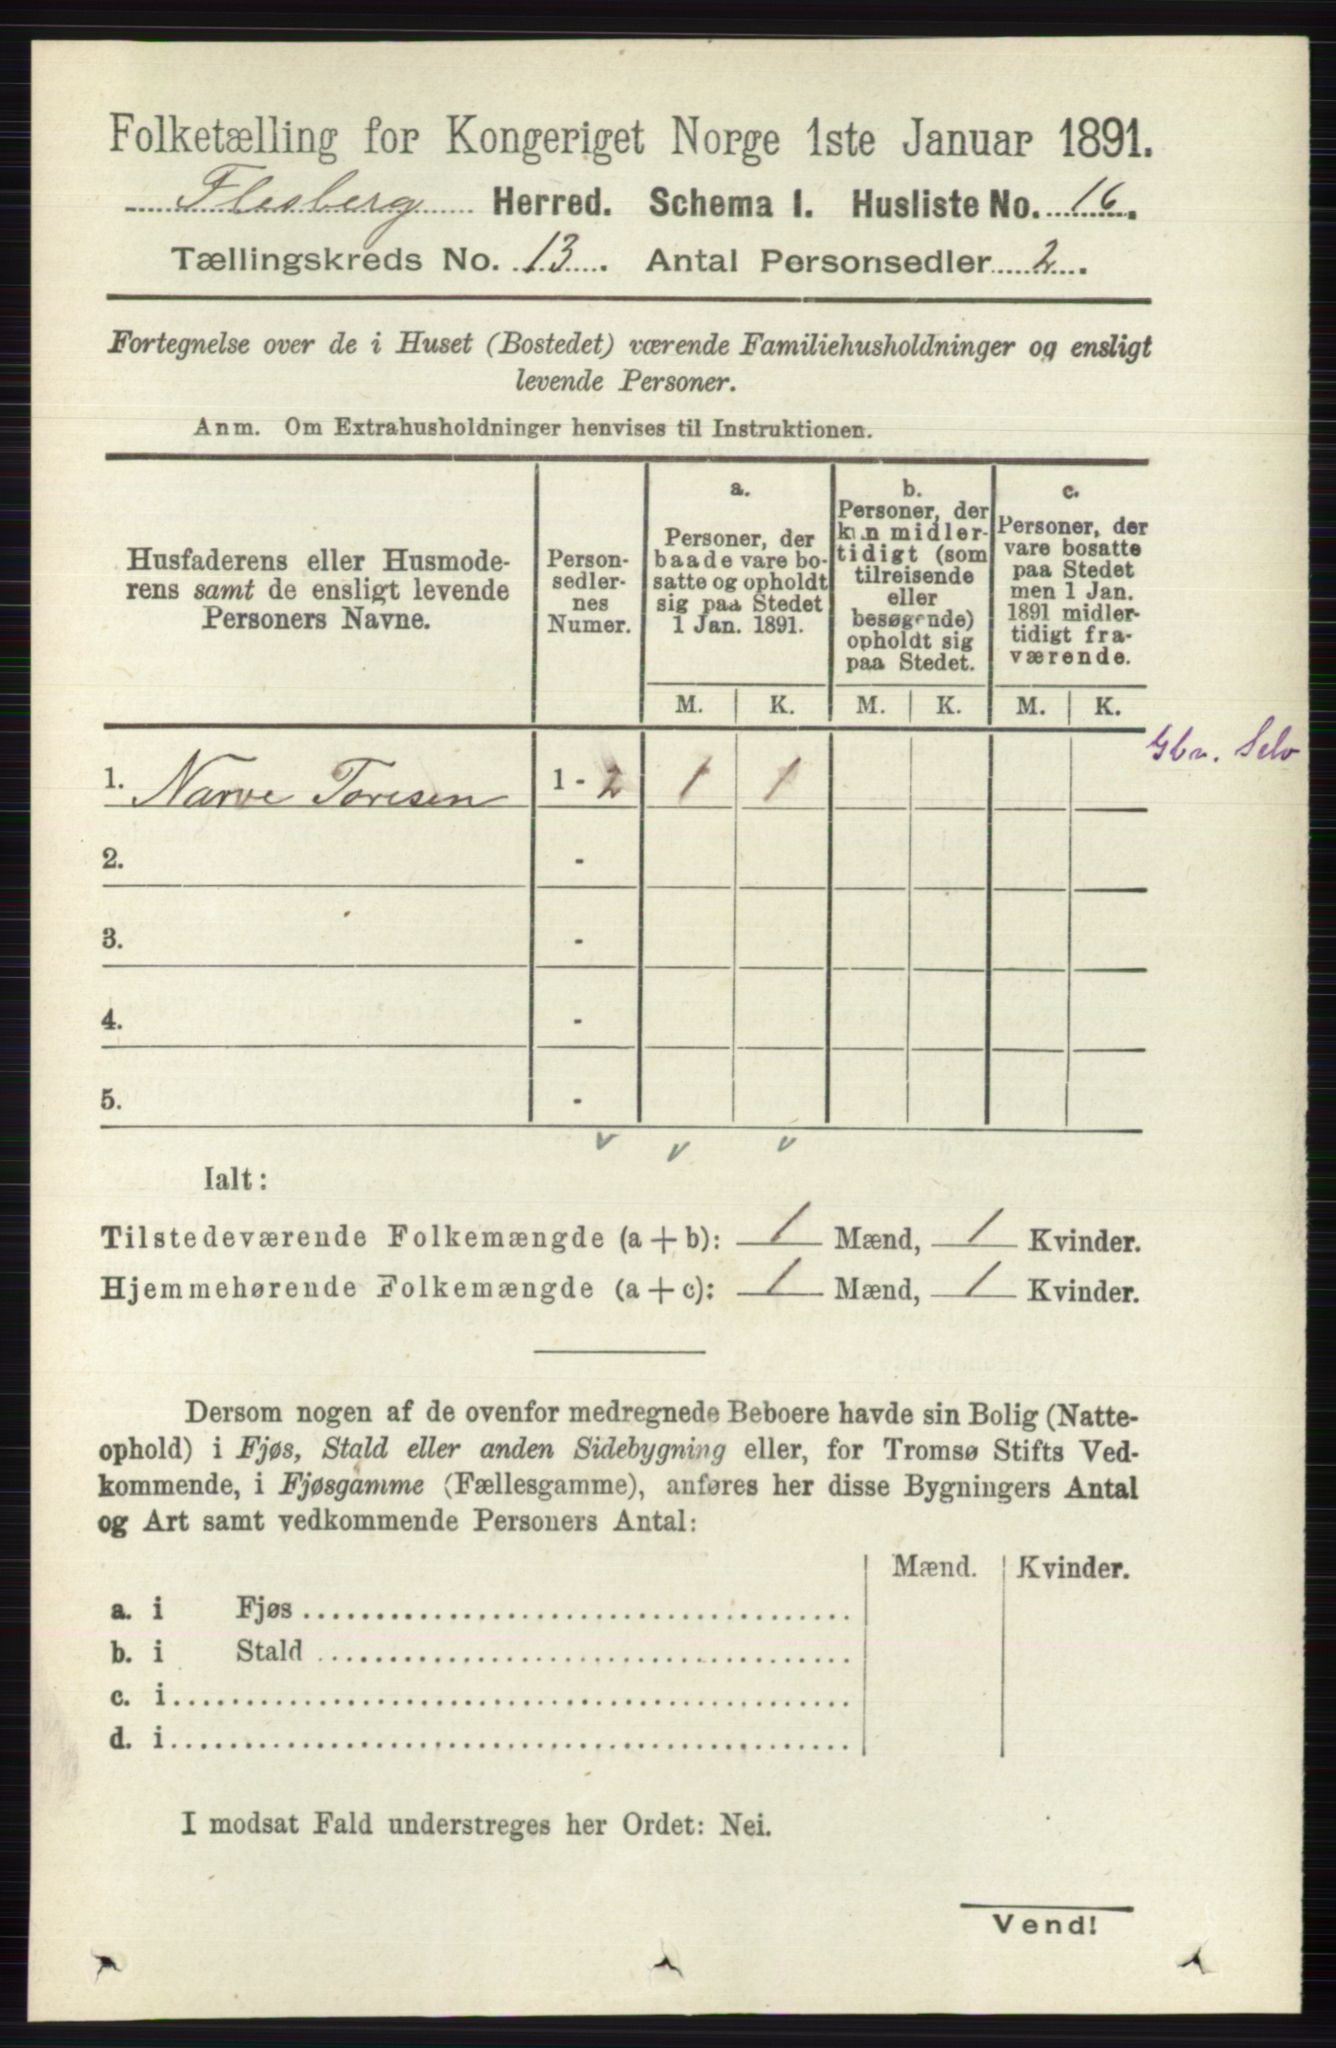 Folketælling for Kongeriget Norge 1ste Januar 1891.
Flesberg Herred. Schema 1. Husliste No. 16.
Tællingskreds No. 13. Antal Personsedler 2.
Fortegnelse over de i Huset (Bostedet) værende Familiehusholdninger og ensligt
levende Personer.
Anm. Om Extrahusholdninger henvises til Instruktionen.
Husfaderens eller Husmode-
rens samt de ensligt levende
Personers Navne.
Person-
sedler-
nes
Numer.
a.
Personer, der
baade vare bo-
satte og opholdt
sig paa Stedet
1 Jan. 1891.
b.
Personer, der
kun midler-
tidigt (som
tilreisende
eller
besøgende)
opholdt sig
paa Stedet.
c.
Personer, der
vare bosatte
paa Stedet
men 1 Jan.
1891 midler-
tidigt fra-
værende.
M. K. M. K. M. K.
Gbr. Selv
1. Narve Toresen 1 - 2 1 1
2. -
3. -
4. -
5. -
v v v
Ialt:
Tilstedeværende Folkemængde (a + b): 1 Mænd, 1 Kvinder.
Hjemmehørende Folkemængde (a + c): 1 Mænd, 1 Kvinder.
Dersom nogen af de ovenfor medregnede Beboere havde sin Bolig (Natte-
ophold) i Fjøs, Stald eller anden Sidebygning eller, for Tromsø Stifts Ved-
kommende, i Fjøsgamme (Fællesgamme), anføres her disse Bygningers Antal
og Art samt vedkommende Personers Antal:
Mænd. Kvinder.
a. i Fjøs
b. i Stald
c. i
d. i
I modsat Fald understreges her Ordet: Nei.
Vend!